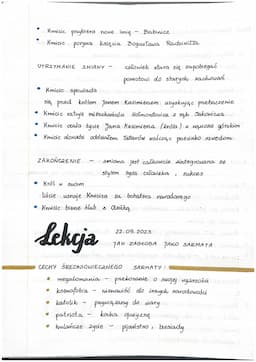 • Kmicic przybiera nowe imię - Babinicz
• Kmicic porywa księcia Bogusława Radziwiłła
UTRZYMANIE ZMIANY - człowiek stara się zapobiegać
powrotowi do starych zachowań
• Kmicic spowiada
się przed królem Janem Kazimierzem uzyskując przebaczenie
• Kmicic ratuje mieszkańców
• Kmicic ocala życie Jana Kazimierza (króla) w wąwozie górskim
• Kmicic dowodzi oddziałem Tatarów walcząc przeciwko szwedom
ZAKOŃCZENIE - zmiana jest całkowicie zintegrowana ze
stylem życia człowieka, sukces
• Król w swoim
liście uznaje Kmicica za bohatera narodowego
• Kmicic bierze ślub z Oleńką
Lekcja
22.09.2023
JAN ZAGŁOBA JAKO SARMATA
CECHY ŚREDNIOWIECZNEGO SARMATY:
• megalomania - przekonanie o swojej wyższości
• ksenofobia - nienawiść do innych narodowości
• katolik - przywiązany do wiary
• patriota - kocha ojczyznę
• hulaszcze życie - pijaństwo, biesiady